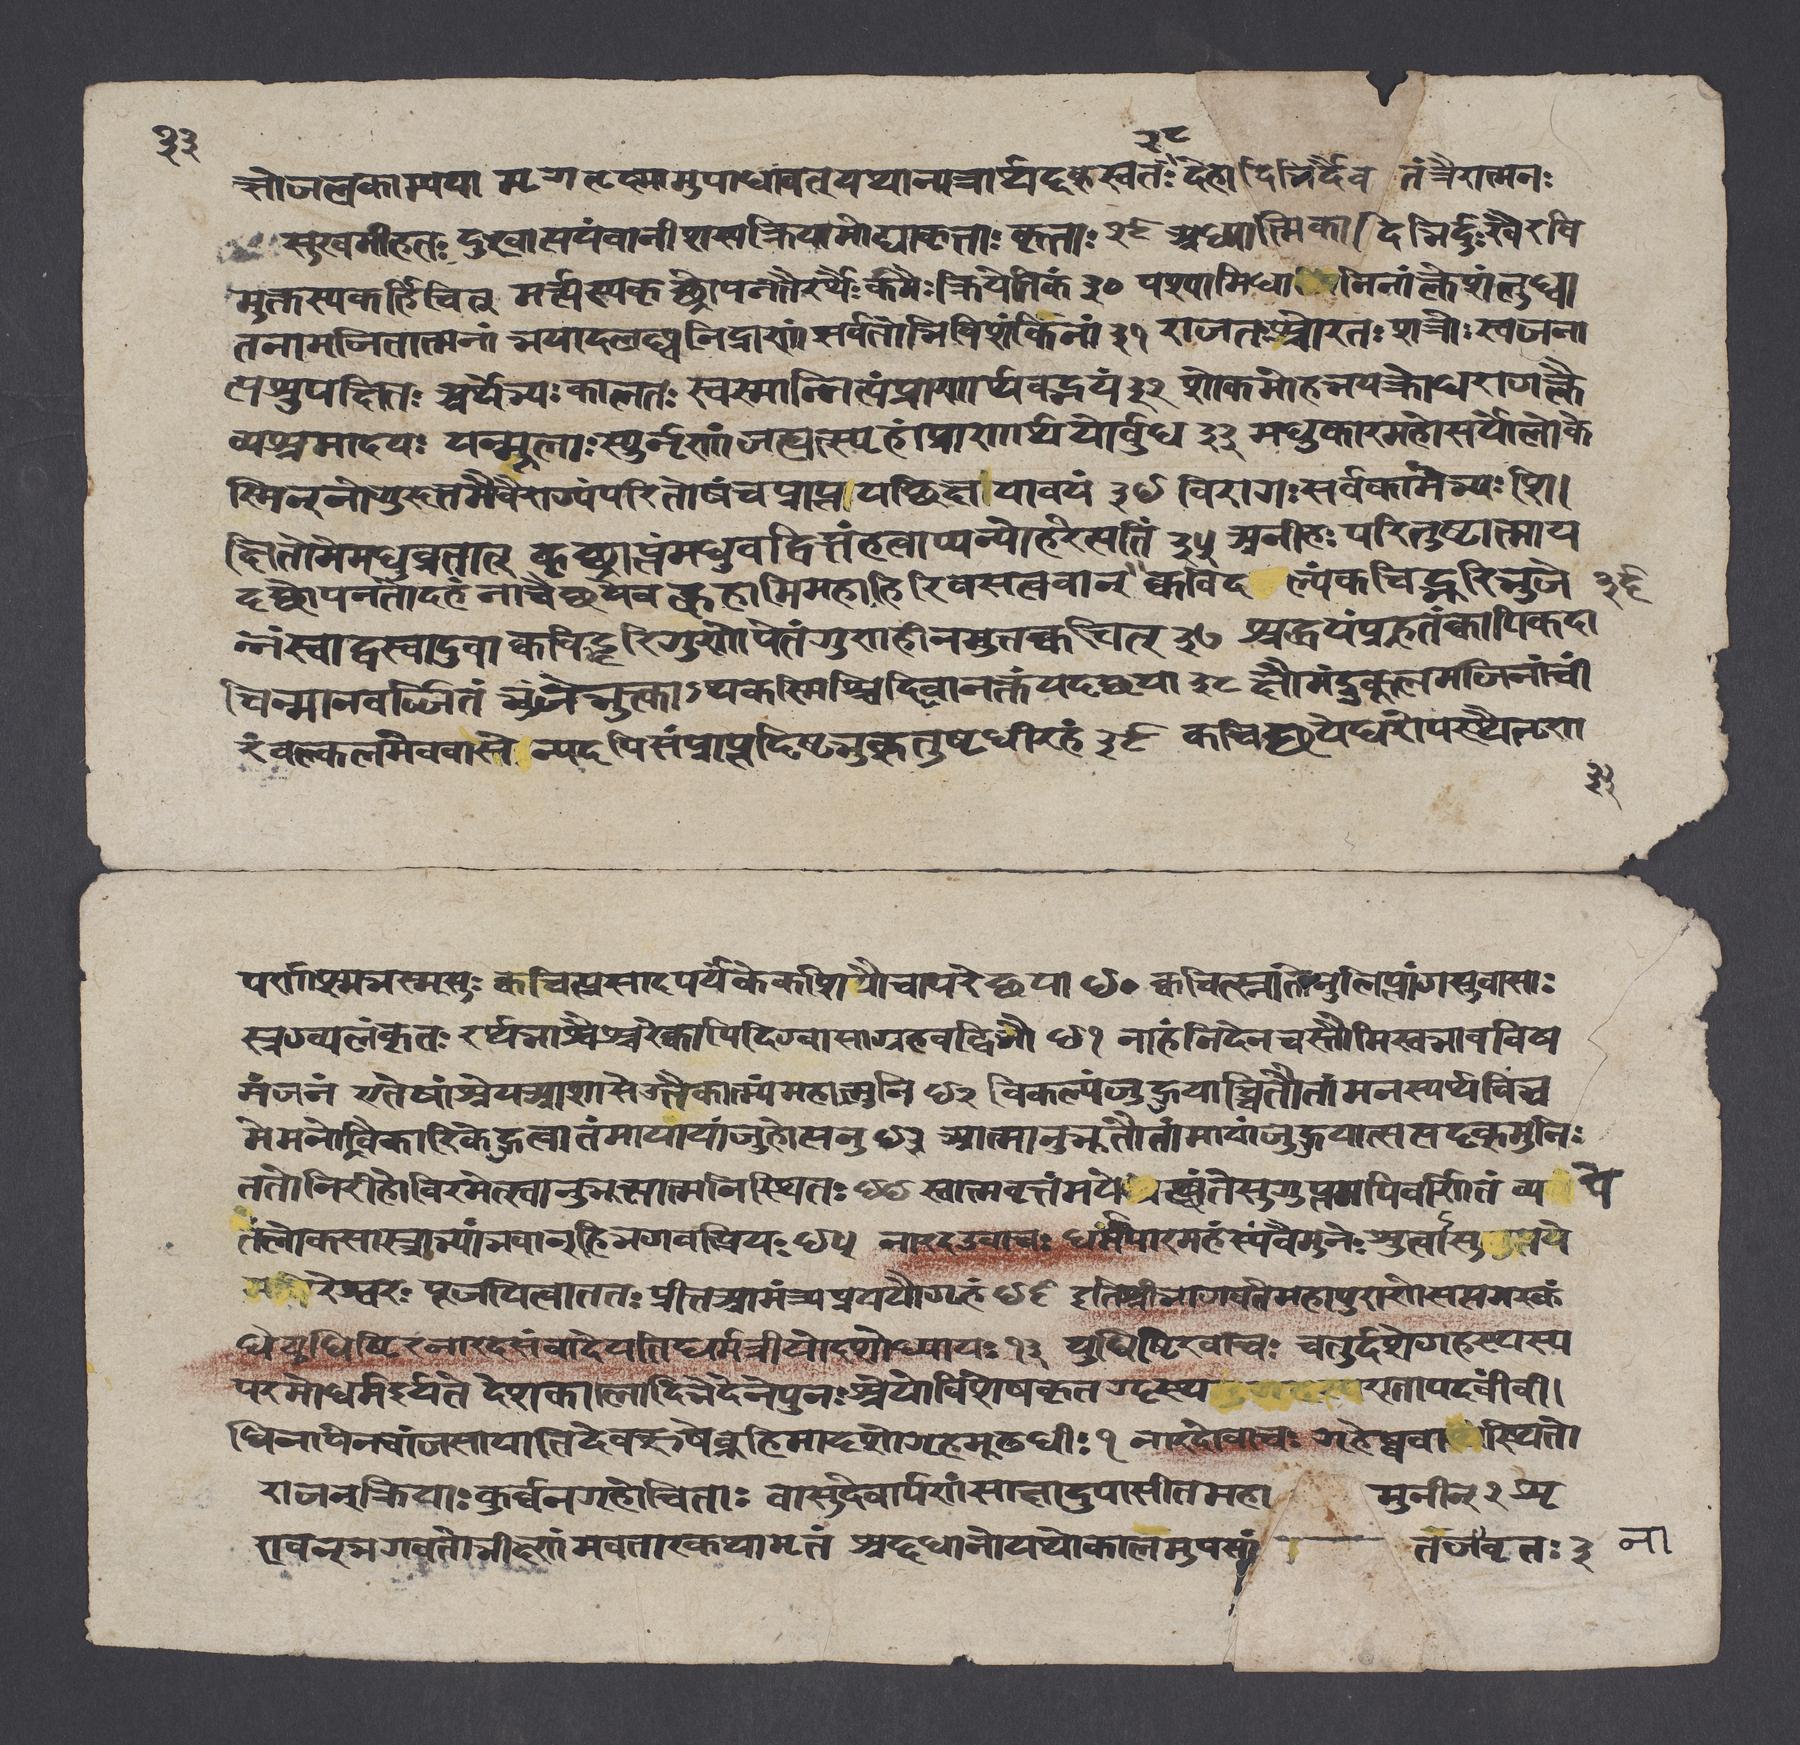 ३३
२८
ज्ञोजलकाम्यया मृगतृष्णामुपाधावेत्यथान्यत्रार्थदृक्स्वतः देहादिभिर्दैव तंत्रैरात्मनः
सुखमीहतः दुःखात्ययंचानीशसक्रियामोघाकृताः कृताः २९ अध्यात्मिकादिभिर्दुःखैरवि
मुक्तस्यकर्हिचित् मर्त्यस्यकृच्छ्रोपनतैरर्थैः कामैः क्रियेतकिं ३० पश्यामिधनिनांक्लेशंलुब्धा
तनामजितात्मनां भयादलब्धनिद्राणां सर्वतोभिविशंकिनां ३१ राजतश्चौरतः शत्रोः स्वजना
त्पशुपक्षितः अर्थिभ्यः कालतः स्वस्मान्नित्यंप्राणार्थवद्भयं ३२ शोकमोहभयक्रोधरागक्लै
व्यश्रमादयः यन्मूलाः स्युर्नृणांजह्यात्स्पृहांप्राणार्थयोर्बुध ३३ मधुकारमहासर्पौलोके
स्मिन्नोगुरूत्तमौवैराग्यंपरितोषंचप्राप्तायच्छिक्षयावयं ३४ विरागः सर्वकामेभ्यः शि
क्षितोमेमधुव्रतात् कृच्छ्राप्तंमधुवद्वित्तंहत्वाप्यन्योहरेत्पतिं ३५ अनीहः परितुष्टात्माय
दृच्छोपनतादहं नोचेच्छयेबह्वहामिमहाहिरिवसत्ववान् क्वचिद ल्पंक्वचिद्भूरिभुंजे ३६
न्नंस्वाद्वस्वादुवा क्वचिद्भूरिगुणोपेतंगुणहीनमुतक्वचित् ३७ श्रद्धयोपहृतंक्वापिकदा
चिन्मानवर्जितं भुंजेभुक्त्वाऽथकस्मिंश्चिद्दिवानक्तंयदृच्छया ३८ क्षौमंदुकूलमजिनंची
रंवल्कलमेववावसेन्यदपिसंप्राप्तंदिष्टभुक्तुष्टधीरहं ३९ क्वचिच्छयेधरोपस्थेतृण
३३
पर्णाश्मभस्मसुः क्वचित्प्रासादपर्यंकेकशिपौवापरेच्छया ४० क्वचित्स्नातोनुलिप्तांगसुवासाः
स्रग्व्यलंकृतः रथेभाश्वैश्चरेक्वापिदिग्वासाग्रहवद्विभो ४१ नाहंनिंदेनचस्तौमिस्वभावविष
मंजनं एतेषांश्रेयआशासेउतैकात्म्यंमहात्मनि ४२ विकल्पंजुहुयाच्चितौतांमनस्यर्थविभ्र
मेमनोवैकारिकेहुत्वातंमायायांजुहोत्यनु ४३ आत्मानुभूतौतांमायांजुहुयात्सत्यदृक्मुनिः
ततोनिरीहोविरमेत्स्वानुभूत्यात्मनिस्थितः ४४ स्वात्मवृत्तंमयेत्थंतेसुगुप्तमपिवर्णितं व्य पे
तंलोकशास्त्राभ्यांभवान्हिभगवत्प्रियः ४५ नारदउवाचः धर्मंपारमहंस्यंवैमुनेः श्रुत्वासु
रेश्वरः पूजयित्वाततः प्रीतआमंत्र्यप्रययौगृहं ४६ इतिश्रीभागवतेमहापुराणेसप्तमस्कं
धेयुधिष्टिरनारदसंवादेयतिधर्मत्रीयोदशोध्यायः १३ युधिष्टिरवाचः चतुर्दशेगृहस्थस्य
परमोधर्मईर्यते देशकालादिभेदेनपुनः श्रेयोविशेषकृत गृहस्थ एतांपदवींवी
धिनायेनचांजसायातिदेवऋषेब्रूहिमादृशोगृहमूढधीः १ नारदोवाचः गृहेष्ववस्थितो
राजन्क्रियाः कुर्वन्गृहोचिताः वासुदेवार्पणंसाक्षादुपासीतमहा मुनीन् २ शृ
ण्वन्भगवतोभीक्ष्णंमवतारकथामृतं श्रद्दधानोयथाकालमुपशां तजवृतः ३ ना